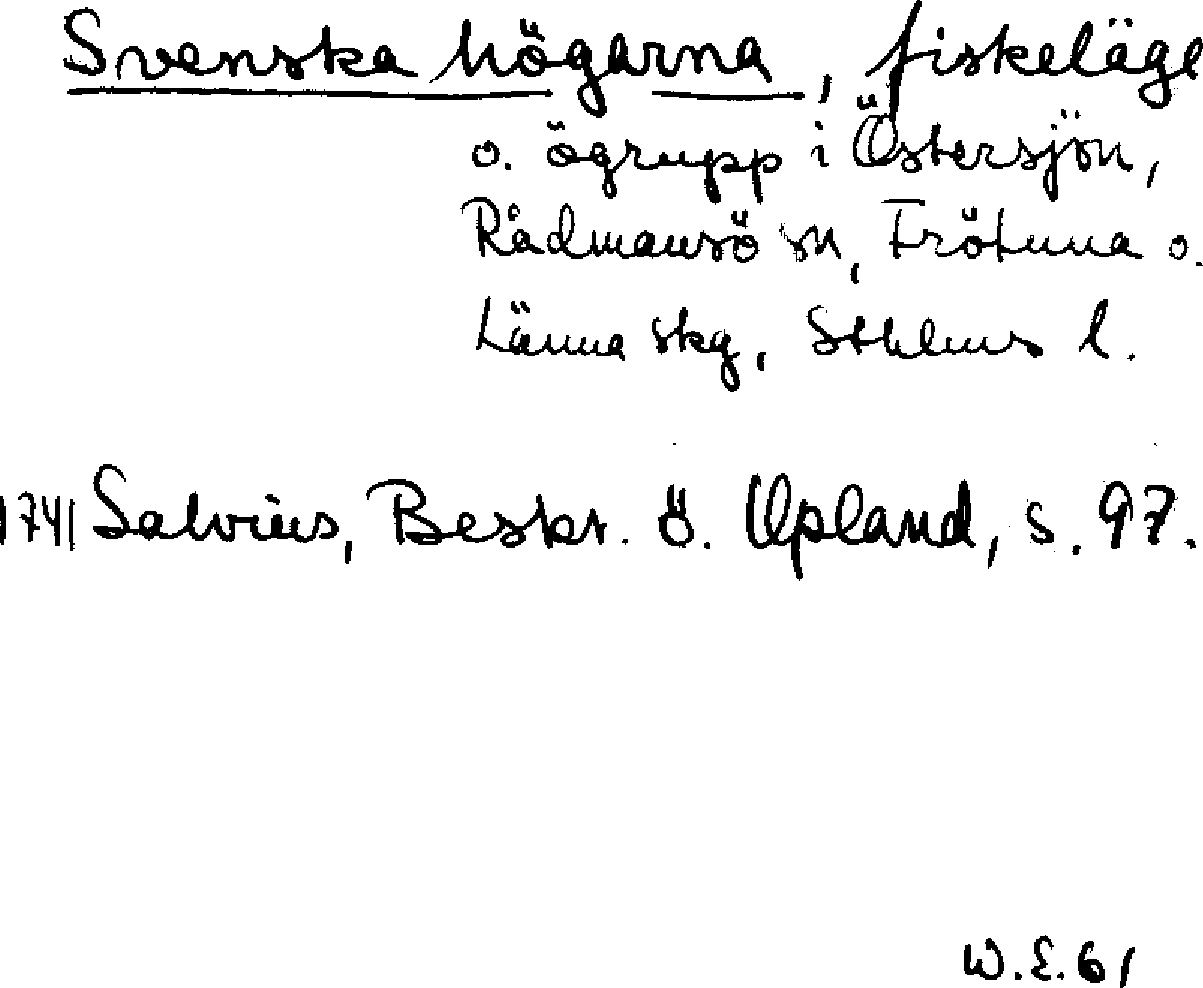 Svenska högarna, fiskeläge
o. ögrupp i Östersjön,
Rådmansö sn, Frötuna o.
Länna skg, Sthlms l.
1741 Salvius, Beskr. ö. Upland, s. 97.
W.E.61